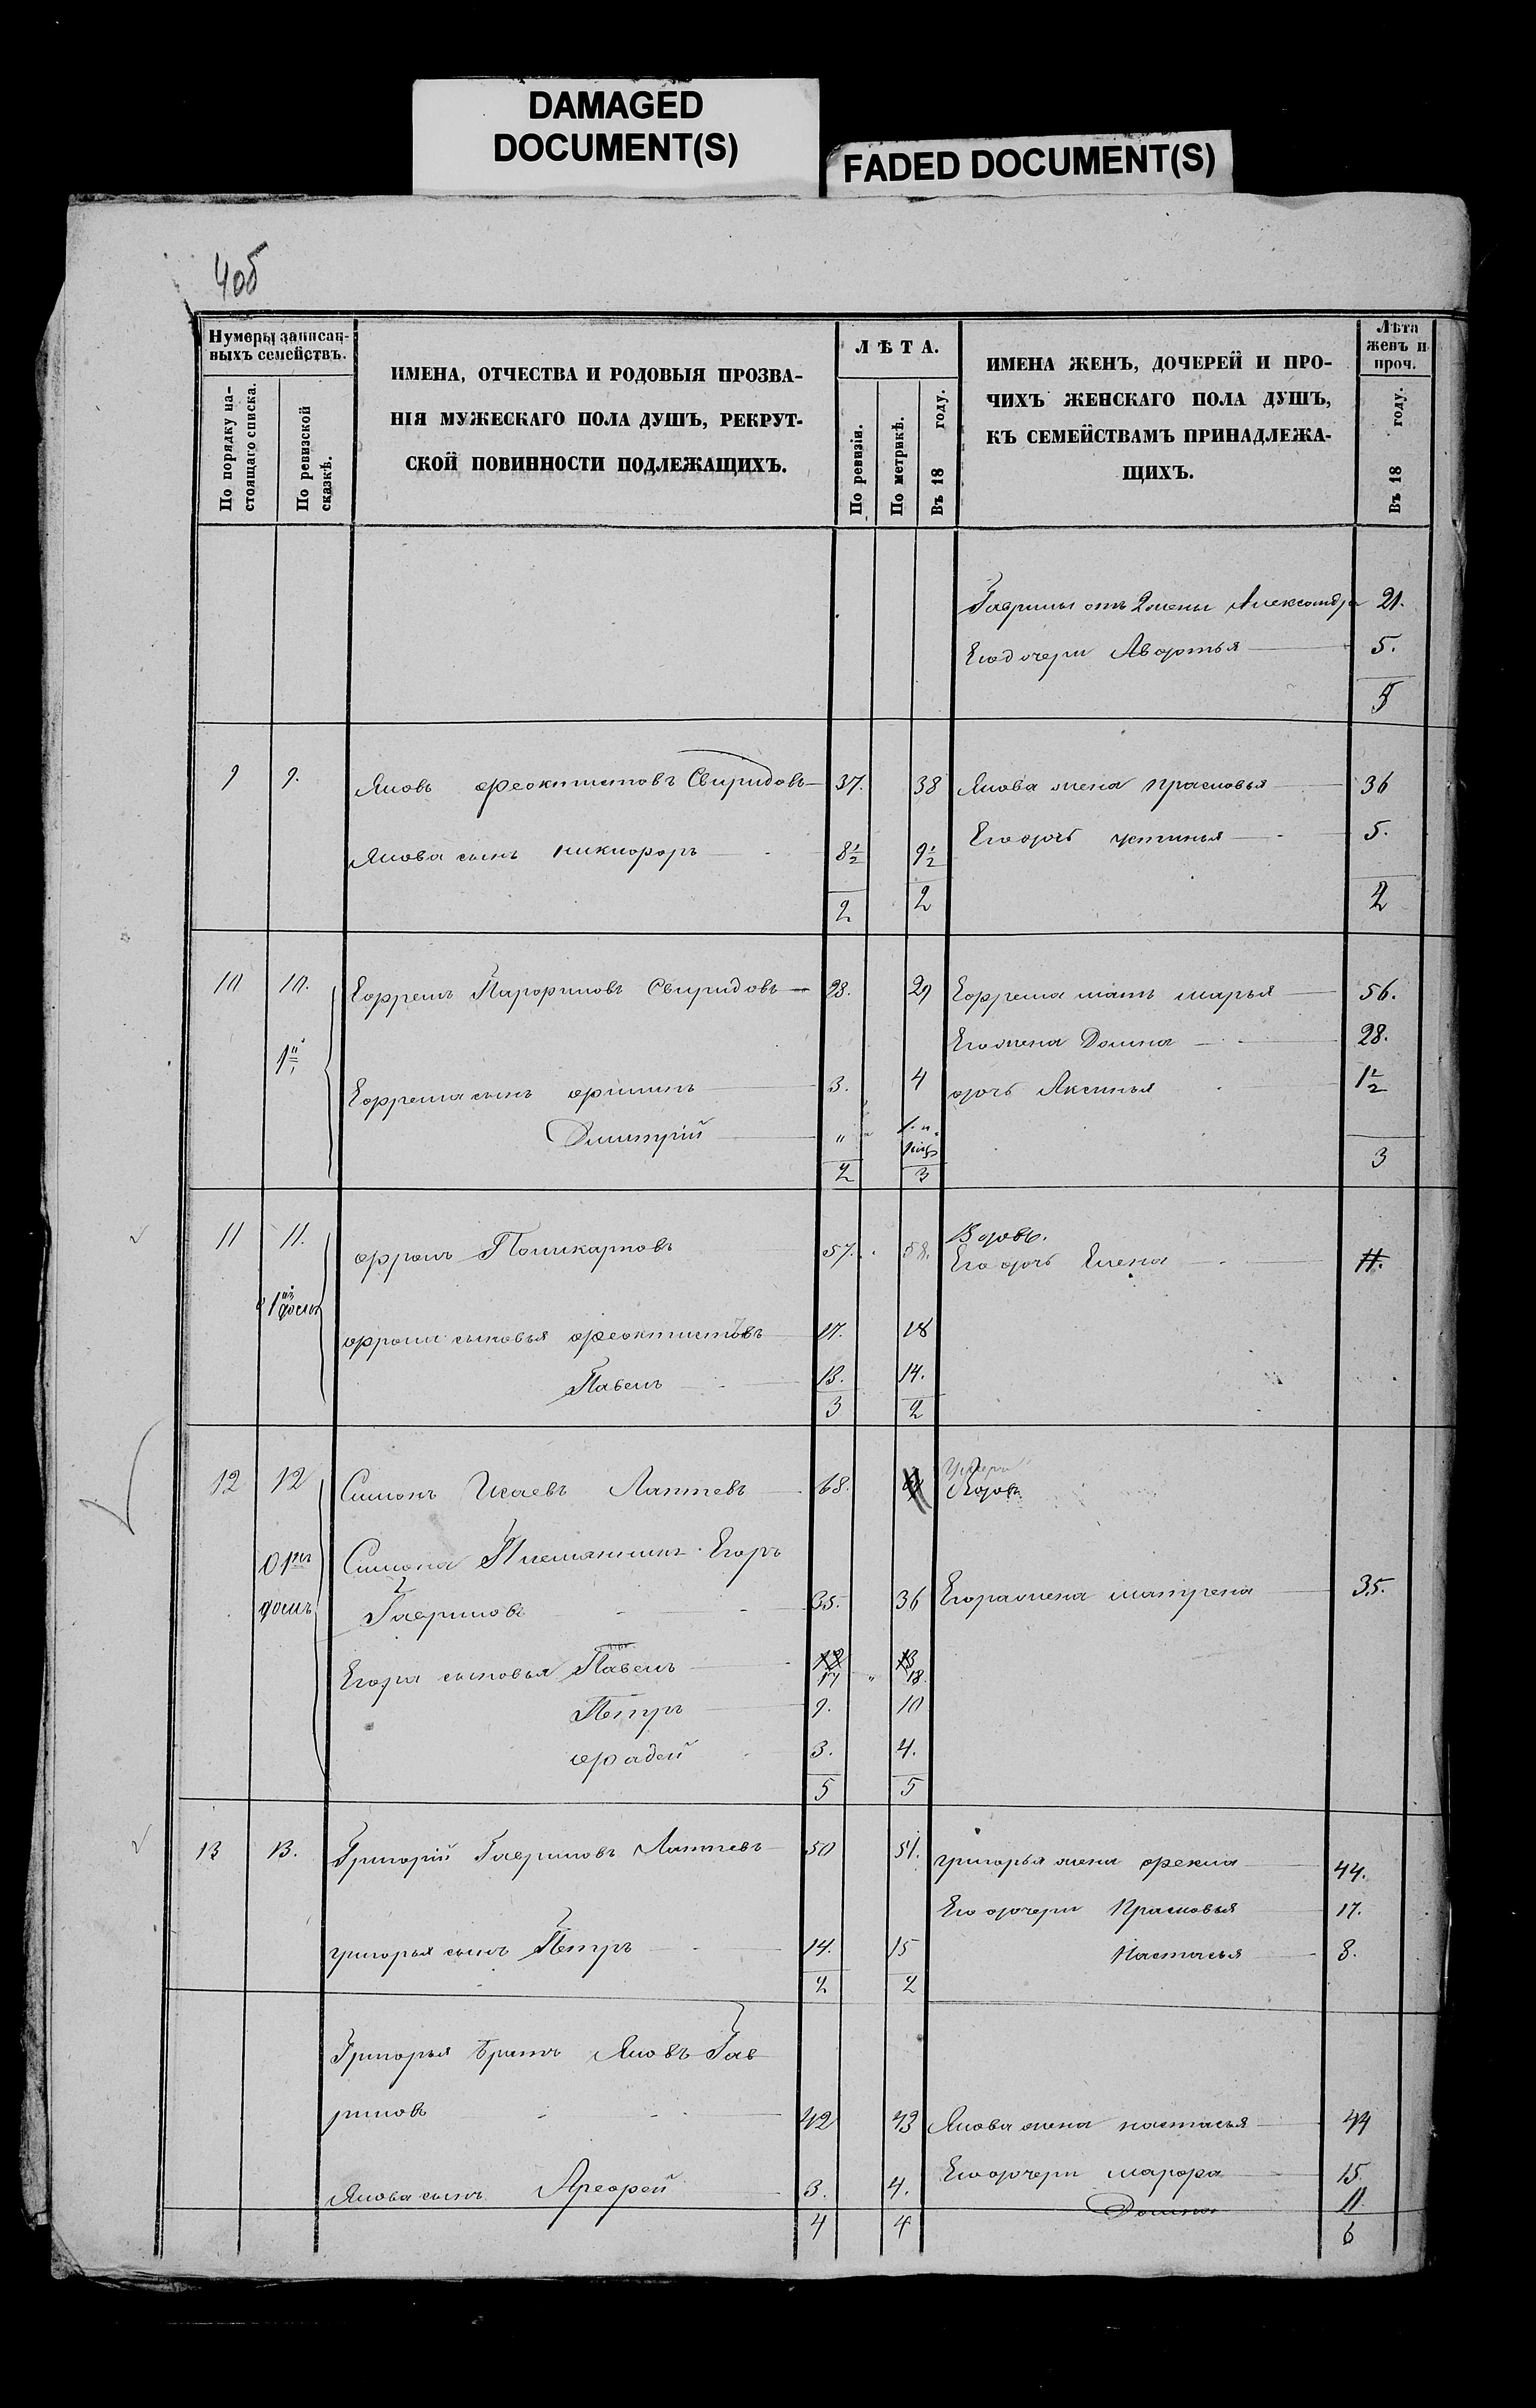 DAMAGED
DOCUMENT(S)
FADED DOCUMENT(S)
405
Нумеры записан-
ныхъ семействъ.
По порядку на-
стоящаго списка.
По ревизской
сказкѣ.
ИМЕНА, ОТЧЕСТВА И РОДОВЫЯ ПРОЗВА-
НІЯ МУЖЕСКАГО ПОЛА ДУШЪ, РЕКРУТ-
СКОЙ ПОВИННОСТИ ПОДЛЕЖАЩИХЪ.
ЛѢТА.
По ревизіи.
По метрикѣ.
Въ 18 году.
ИМЕНА ЖЕНЪ, ДОЧЕРЕЙ И ПРО-
ЧИХЪ ЖЕНСКАГО ПОЛА ДУШЪ,
КЪ СЕМЕЙСТВАМЪ ПРИНАДЛЕЖА-
ЩИХЪ.
Лѣта
женъ и
проч.
Въ 18 году.
Гаврилы отъ 2 жены Александра 21.
Его дочери Авдотья 5.
5
9 9. Яковъ Феоктистовъ Свиридовъ 37. 38 Якова жена Прасковья 36
Якова сынъ Никифоръ 8½ 9½ Его дочь Устинья 5.
2 2 2
10 10. Ефремъ Парфиновъ Свиридовъ 28. 29 Ефрема мать Марья 56.
1й Его жена Домна 28.
Ефрема сынъ Филипъ 3. 4 дочь Аксинья 1½
Дмитрій " "
2 3 3
11 11. Фролъ Поликарповъ 57. 58. Вдовъ.
Его дочь Елена 11.
Фрола сыновья Феоктистовъ 17. 18
Павелъ 13. 14.
3 2
12 12 Симонъ Исаевъ Лаптевъ 68. Вдовъ
Симона Племянникъ Егоръ
домъ Гавриловъ 35. 36 Егора жена Матрена 35.
Егора сыновья Павелъ 17 18.
Петръ 9. 10
Фадей 3. 4.
5 5
13 13. Григорій Гавриловъ Лаптевъ 50 51. Григорья жена Фекла 44.
Его дочери Прасковья 17.
Григорья сынъ Петръ 14. 15 Настасья 8.
2 2
Григорья братъ Яковъ Гав
риловъ 42 43 Якова жена Настасья 44
Его дочери Марфа 15.
Якова сынъ Арефей 3. 4. Домна 11.
4 4 6